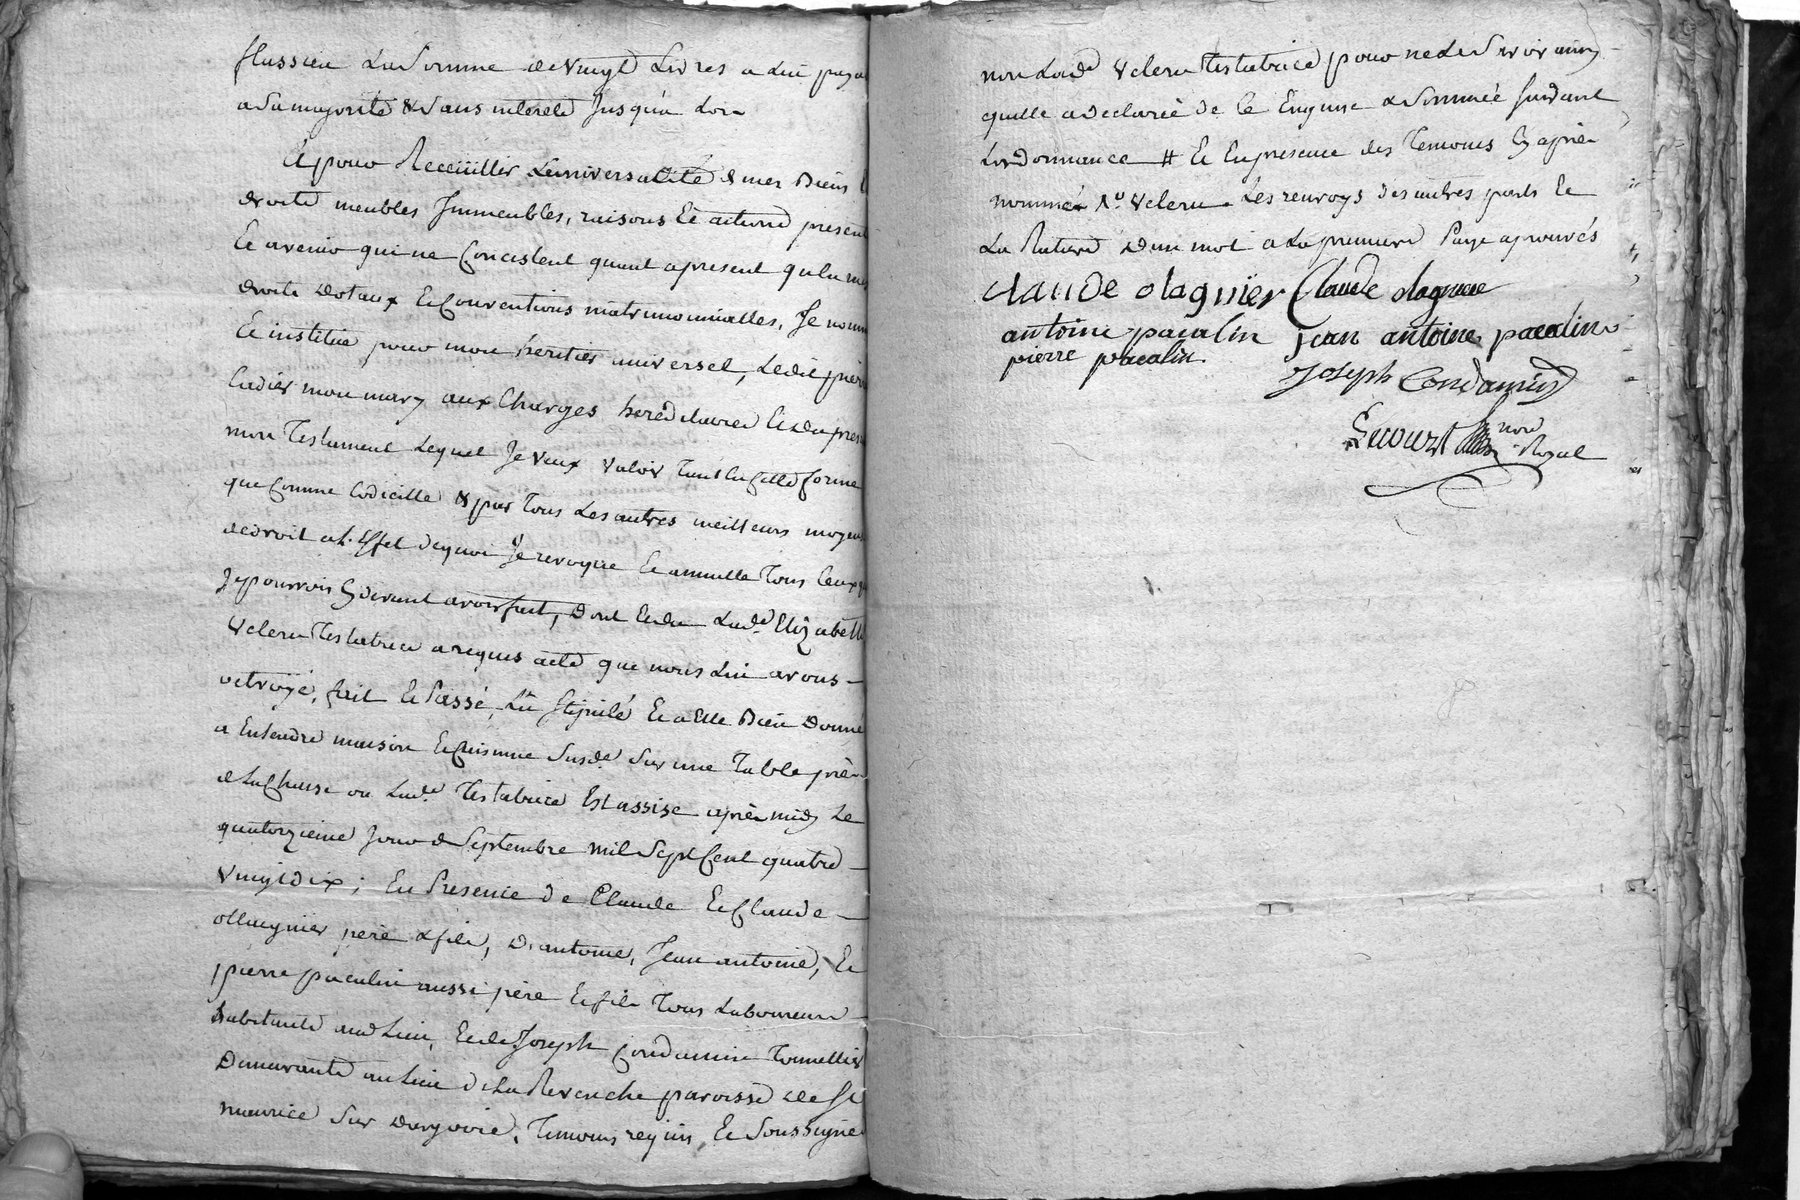 flassieu La Somme de vingt Livres a Lui paya
a Sa majorité & Sans interets Jusqu'a Lors
Et pour Receuillir L'universalité de mes Biens &
droits meubles Immeubles, raisons Et actions presents
Et avenir qui ne Concistent quant apresent qu'en mes
droits dotaux Et Conventions matrimonialles, Je nomme
Et institue pour mon heritier universel, Ledit pierre
Cadier mon mary aux Charges hereditaires Et du present
mon Testament Lequel Je veux valoir Tant En Cette forme
que Comme Codicille & par Tous Les autres meilleurs moyens
de droit a L'Effet dequoi Je revoque Et annulle Tous Ceux que
Je pourrois Cy devant avoir fait, Dont Et du Lad.e Elizabeth
Veleru Testatrice a requis acte que nous Lui avons
octroyé, fait Et Passé, Lû Stipulé Et a Elle Bien Donné
a Entendre maison Et Cuisinne Susd.e Sur une Table près
de La Chaise ou Lad.e Testatrice Est assise après midy Le
quatorzieme Jour de Septembre mil Sept Cent quatre
vingt dix; En Presence de Claude Et Claude
ollagnier père & fils, D'antoine, Jean antoine, Et
pierre pacalin aussi père Et fils Tous Laboureurs
habitants aud Lieu, Et de Joseph Condamin Tonnellier
Demeurante au Lieu de La Revenche paroisse de St
maurice Sur Dargoire, Temoins requis Et Soussignés
non Lad.e Veleru Testatrice pour ne Le Savoir ainsy
qu'elle a Declarée de Ce Enquise & Sommée Suivant
L'ordonnance # Et En presence des Temoins Cy après
nommés N.e Veleru Les renvoys des autres parts Et
La Rature D'un mot a La premiere Page aprouvés
claude olagnier Claude olagnier
antoine pacalin jean antoine pacalin
pierre pacalin
Joseph Condamin
Lecourt
nore Royal